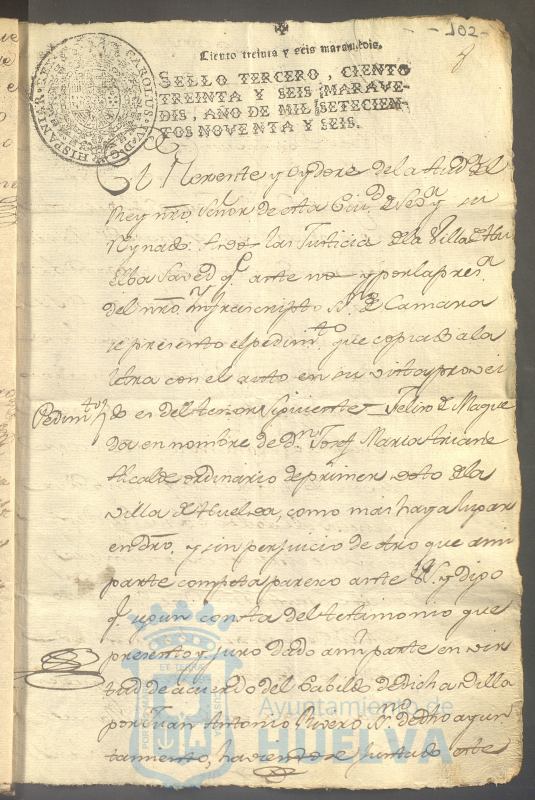 102
Ciento treinta y seis maravedis.
SELLO TERCERO, CIENTO
TREINTA Y SEIS MARAVE-
DIS, AÑO DE MIL SETECIEN-
TOS NOVENTA Y SEIS.
CAROLUS IV D G HISPANIAR REX
El Rexente y oydores de la Audª del
Rey nro. Señor de esta Ciud. de Sevª y su
Reynado las Justicia de la Villa de Hu
elba Saved qe. ante nos y por la presª
del nro. infraescripto SSno de Camara
se presento el pedimto que copiado a la
letra con el auto en su vista provei
Pedimto
do es del tenor siguiente Felix de Mague
da en nombre de Dn Josef Maria
Alcalde ordinario de primer voto de la
villa de Huelva, como mas haya lugar
en dro. y sin perjuicio de otro que a mi
parte competa paresco ante VS. y digo
qe segun consta del testimonio que
presento y juro dado a mi parte en vir
tud de acuerdo del Cabildo de dicha villa
por Juan Antonio Rivero SSno. de dho ayun
tamiento, haviendose juntado este
Ayuntamiento de
HUELVA